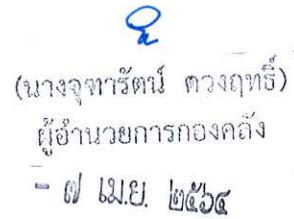 (นางจุฑารัตน์ ดวงฤทธิ์)
ผู้อำนวยการกองคลัง
- ๗ เม.ย. ๒๕๖๔